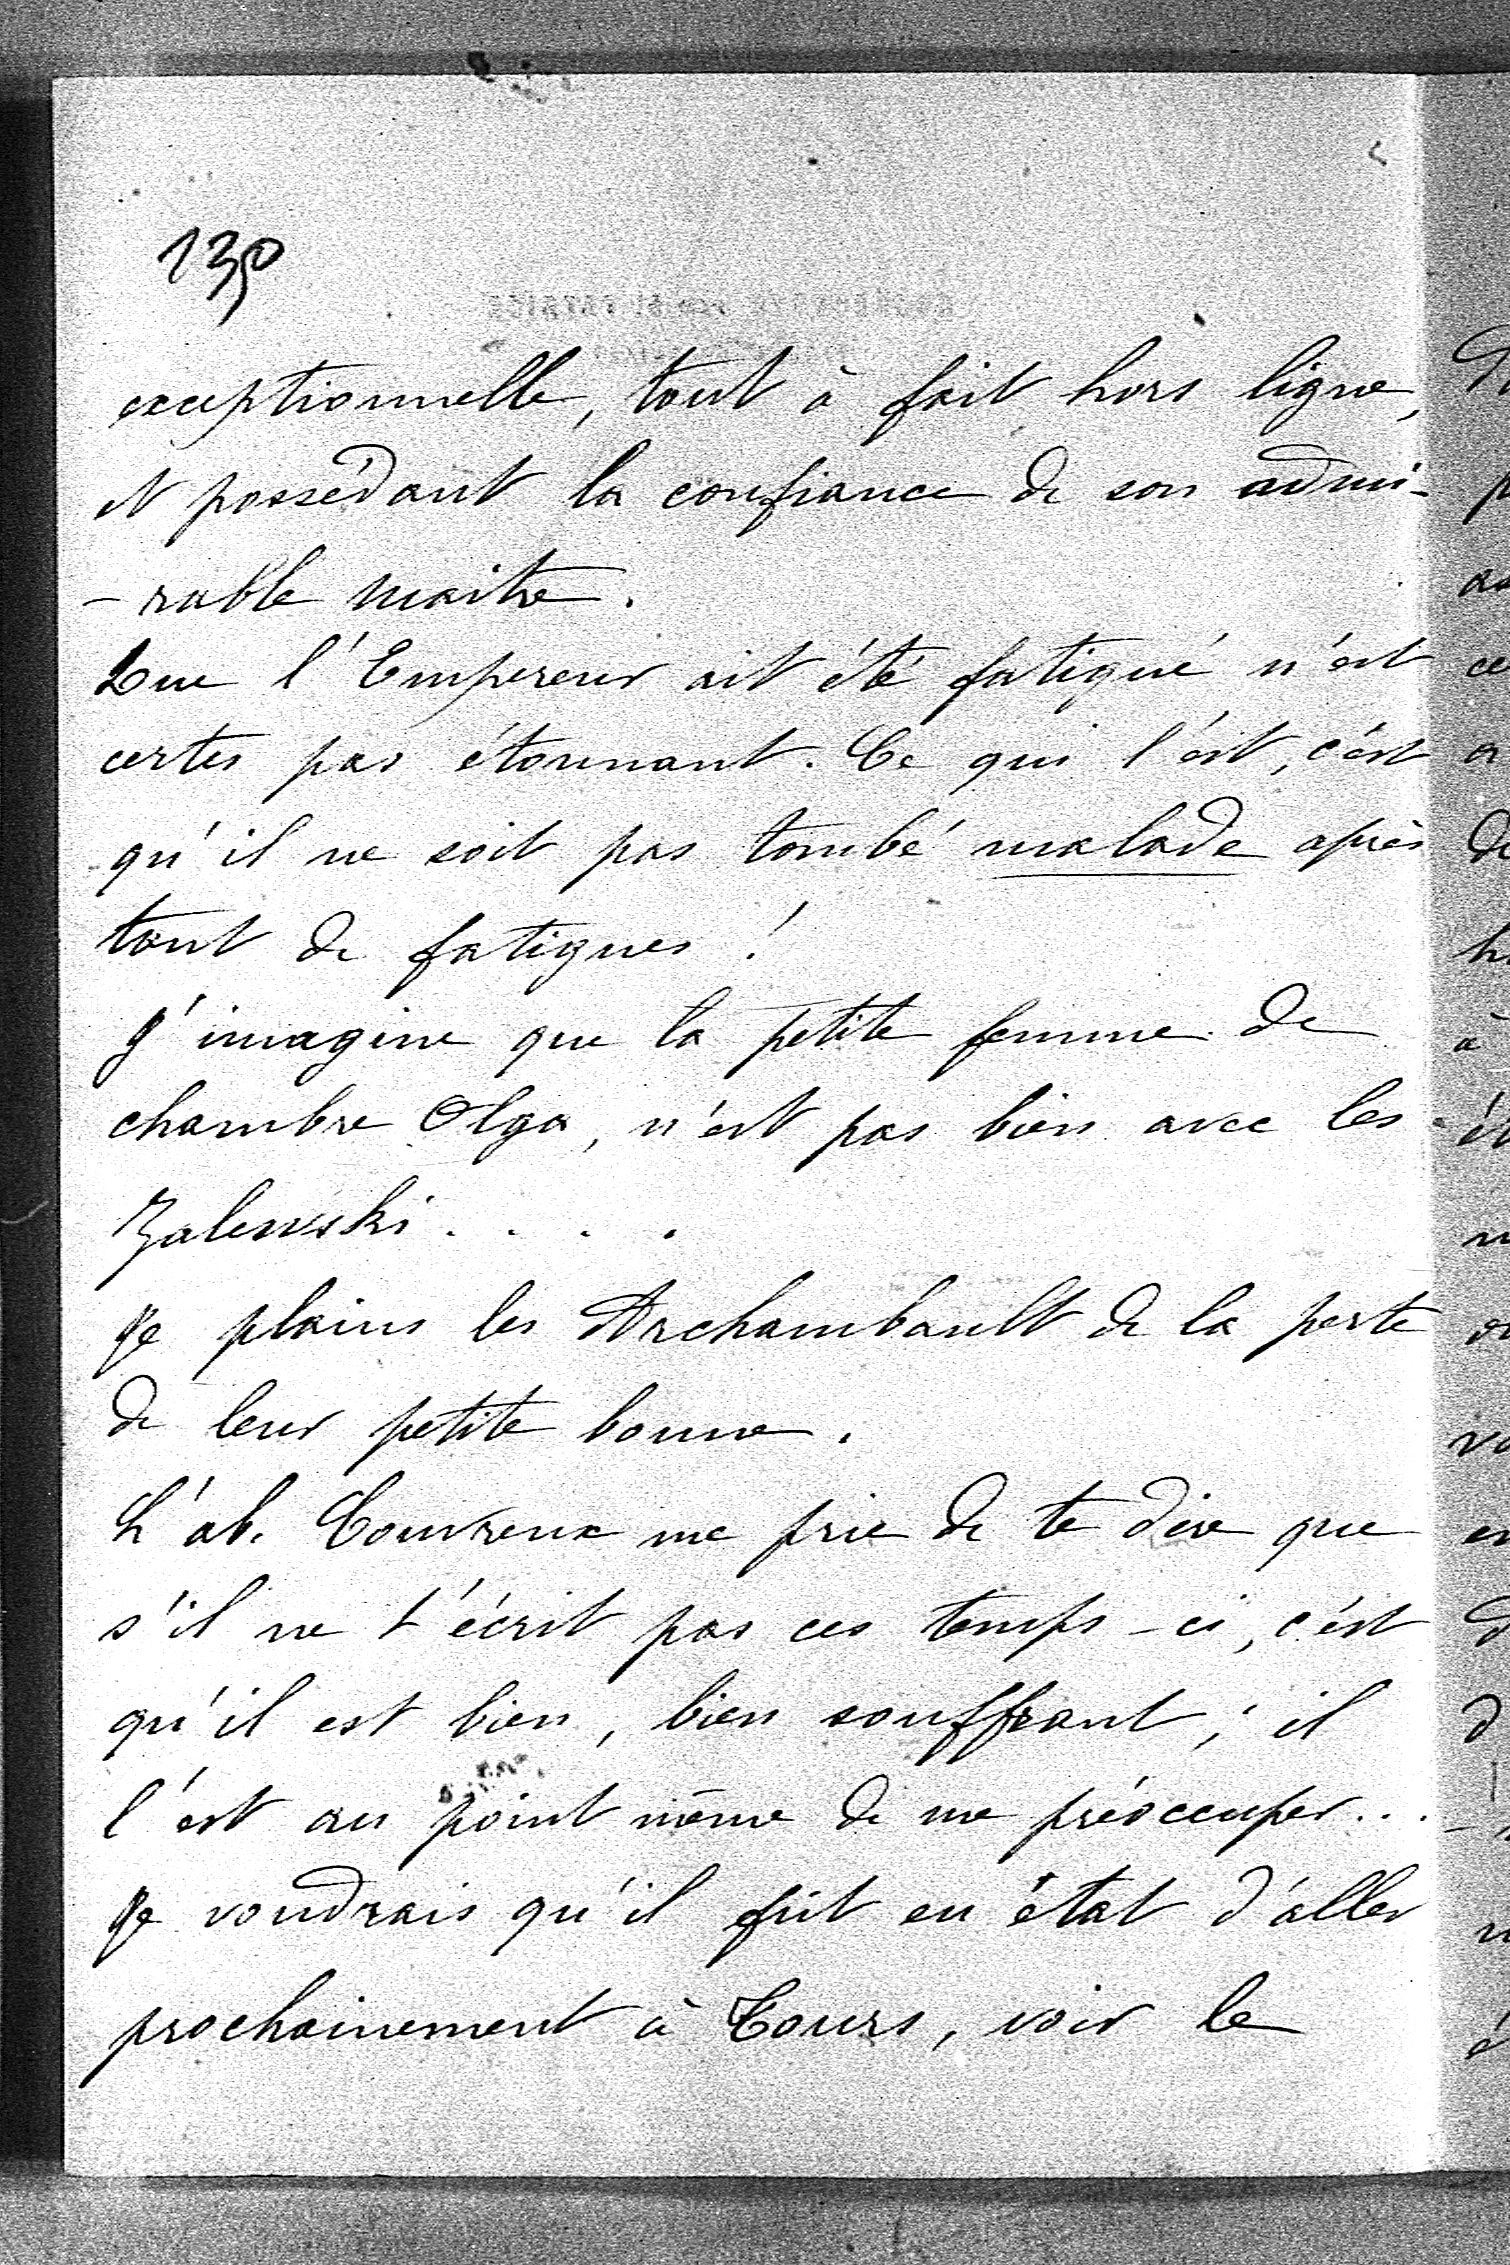 130
exceptionnelle, tout à fait hors ligne,
et possédant la confiance de son admi-
-rable maître.
Que l'Empereur ait été fatigué n'est
certes pas étonnant. Ce qui l'est, c'est
qu'il ne soit pas tombé malade après
tant de fatigues !
J'imagine que la petite femme de
chambre Olga, n'est pas bien avec les
Zalewski . . . .
Je plains les Archambault de la perte
de leur petite bonne.
L'ab. Couvreux me prie de te dire que
s'il ne t'écrit pas ces temps-ci, c'est
qu'il est bien, bien souffrant ; il
l'est au point même de me préoccuper...
Je voudrais qu'il fût en état d'aller
prochainement à Tours, voir le